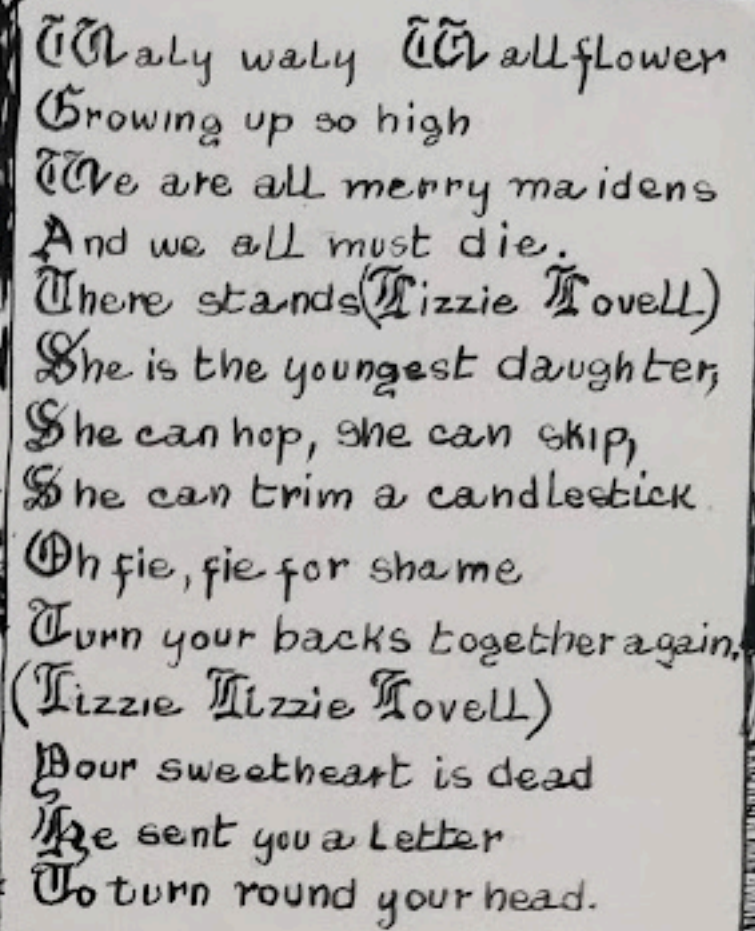 Waly waly Wallflower
Growing up so high
We are all merry maidens
And we all must die.
There stands (Lizzie Lovell)
She is the youngest daughter,
She can hop, she can skip,
She can trim a candlestick
Oh fie, fie for shame
Turn your backs together again.
(Lizzie Lizzie Lovell)
Your sweetheart is dead
He sent you a letter
To turn round your head.